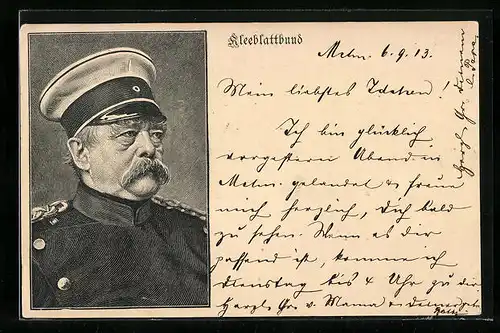 Kleeblattbund
Meln. 6.9.13.
Mein liebstes !
Ich bin glücklich
vorgestern Abend in
Meln. gelandet & freue
mich herzlich, Dich bald
zu sehen. Wenn es dir
passend ist, komme ich
Dienstag bis 4 Uhr zu dir
Herzl. Gr. v. Mama &
Herzl. Gr.